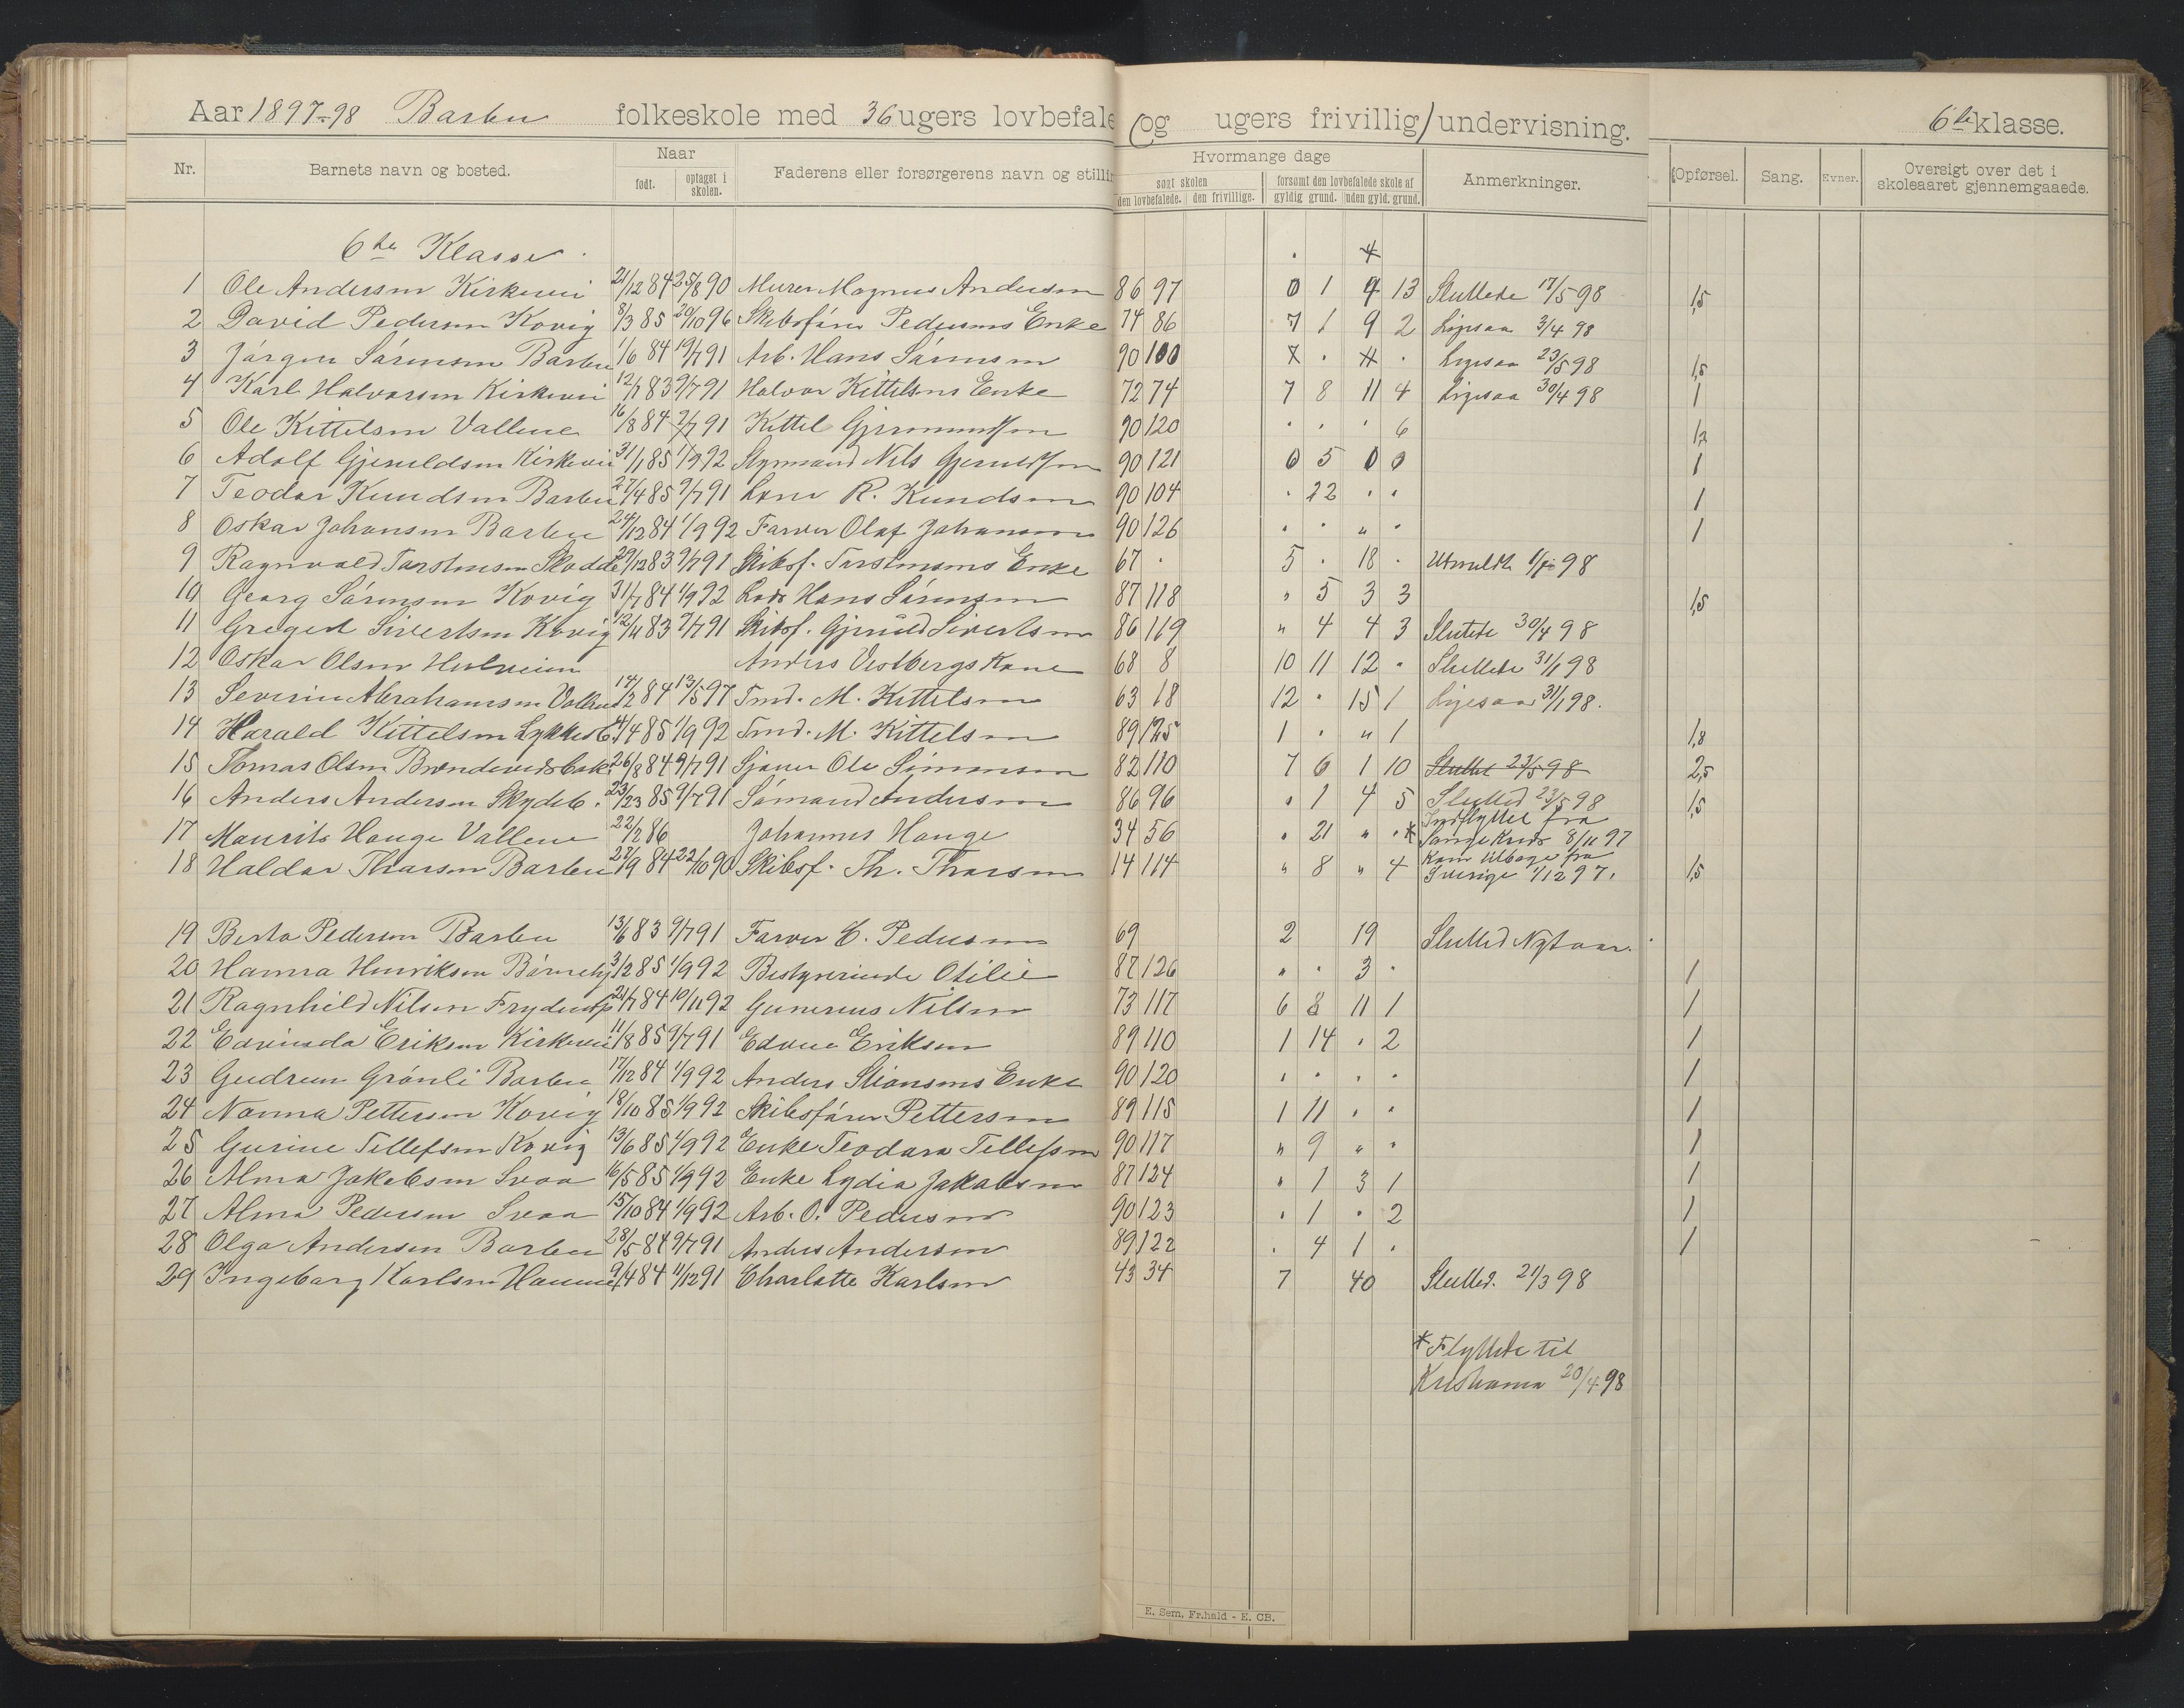 Aar 1897-98 Barbu folkeskole med 36 ugers lovbefale (og ugers frivillig) undervisning. 6te klasse.
Nr. Barnets navn og bosted. Naar Faderens eller forsørgerens navn og stilli Hvormange dage Anmerkninger. Opførsel. Sang. Evner. Oversigt over det i
født. optaget i skolen. søgt skolen forsømt den lovbefalede skole af skoleaaret gjennemgaaede.
den lovbefalede. den frivillige. gyldig grund. uden gyld. grund.
6te Klasse
1 Ole Andersen Kirkevei 21/12 84 25/8 90 Murer Magnus Andersen 86 97 0 1 4 13 Sluttede 17/5 98 1,5
2 David Pedersen Kovig 8/3 85 20/10 96 Skibsfører Pedersens Enke 74 86 7 1 9 2 Ligesaa 3/4 98
3 Jørgen Sørensen Barbu 1/6 84 19/7 91 Arb. Hans Sørensen 90 100 Ligesaa 23/5 98 1,5
4 Karl Halvorsen Kirkevei 12/7 83 9/7 91 Halvor Kittelsens Enke 72 74 7 8 11 4 Ligesaa 30/4 98 1
5 Ole Kittelsen Vallene 16/8 84 9/7 91 Kittel 90 120 . . . 6 1,2
6 Adolf Gjeruldsen Kirkevei 31/1 85 1/9 92 Styrmand Nils Gjeruldsen 90 121 0 5 0 0 1
7 Teodor Knudsen Barbu 27/4 85 9/7 91 R. Knudsen 90 104 . 22 . . 1
8 Oskar Johansen Barbu 24/12 84 1/9 92 Farver Olaf Johansen 90 126 . . " . 1
9 Ragnvald Torstensen 29/12 83 9/7 91 Skibsf. Torstensens Enke 67 . 5 . 18 . Utmeldt 98
10 Georg Sørensen Kovig 31/7 84 1/9 92 Lods Hans Sørensen 87 118 " 5 3 3 1,5
11 Gregert Sivertsen Kovig 12/11 83 9/7 91 Skibsf. Gjeruld Sivertsen 86 119 " 4 4 3 Slutede 30/4 98
12 Oskar Olsen Anders Vestbergs Kone 68 8 10 11 12 . Sluttede 31/1 98
13 Severin Abrahamsen Vallene 14/2 84 13/5 97 Tmd. M. Kittelsen 63 18 12 . 15 1 Ligesaa 31/1 98.
14 Harald Kittelsen 4/4 85 1/9 92 Tmd. M. Kittelsen 89 125 1 . " 1 1,8
15 Tomas Olsen 26/8 84 9/7 91 Sjauer Ole Simonsen 82 110 7 6 1 10 Sluttet 23/5 98 2,5
16 Anders Andersen Skydeb. 23/23 85 9/7 91 Sømand Andersen 86 96 . 1 4 5 Slutted 23/5 98 1,5
17 Maurits Hauge Vallene 22/2 86 Johannes Hauge 34 56 . 21 " . * Indflyttet fra
8/11 97
18 Haldor Thorsen Barbu 23/9 84 22/10 90 Skibsf. Th. Thorsen 14 114 " 8 " 4 Kom tilbage fra 1,5
Sverige 1/12 97.
19 Berta Pedersen Barbu 13/6 83 9/7 91 Farver E. Pedersen 69 2 19 Slutted Nytaar.
20 Hanna Henriksen Børnehj. 3/12 85 1/9 92 Bestyrerinde Otilie 87 126 " . 3 . 1
21 Ragnhild Nilsen 21/7 84 10/11 92 Gunerius Nilsen 73 117 6 8 11 1 1
22 Edvinda Eriksen Kirkevei 11/8 85 9/7 91 Edvin Eriksen 89 110 1 14 . 2 1
23 Gudrun Grønli Barbu 17/12 84 1/9 92 Anders Stiansens Enke 90 120 . . . . 1
24 Nanna Pettersen Kovig 18/10 85 1/9 92 Skibsfører Pettersen 89 115 1 11 . . 1
25 Gurine Tellefsen Kovig 13/6 85 1/9 92 Enke Teodora Tellefsen 90 117 " 9 " . 1
26 Alma Jakobsen Svaa 16/5 85 1/9 92 Enke Lydia Jakobsen 87 124 . 1 3 1 1
27 Alma Pedersen Svaa 15/10 84 1/9 92 Arb. O. Pedersen 90 123 . 1 . 2 1
28 Olga Andersen Barbu 28/5 84 9/7 91 Anders Andersen 89 122 . 4 1 . 1
29 Ingeborg Karlsen 9/4 84 11/12 91 Charlotte Karlsen 43 34 7 40 Slutted. 21/3 98
* Flyttede til
Kristiania 20/4 98
E. Sem, Fr.hald - E. CB.